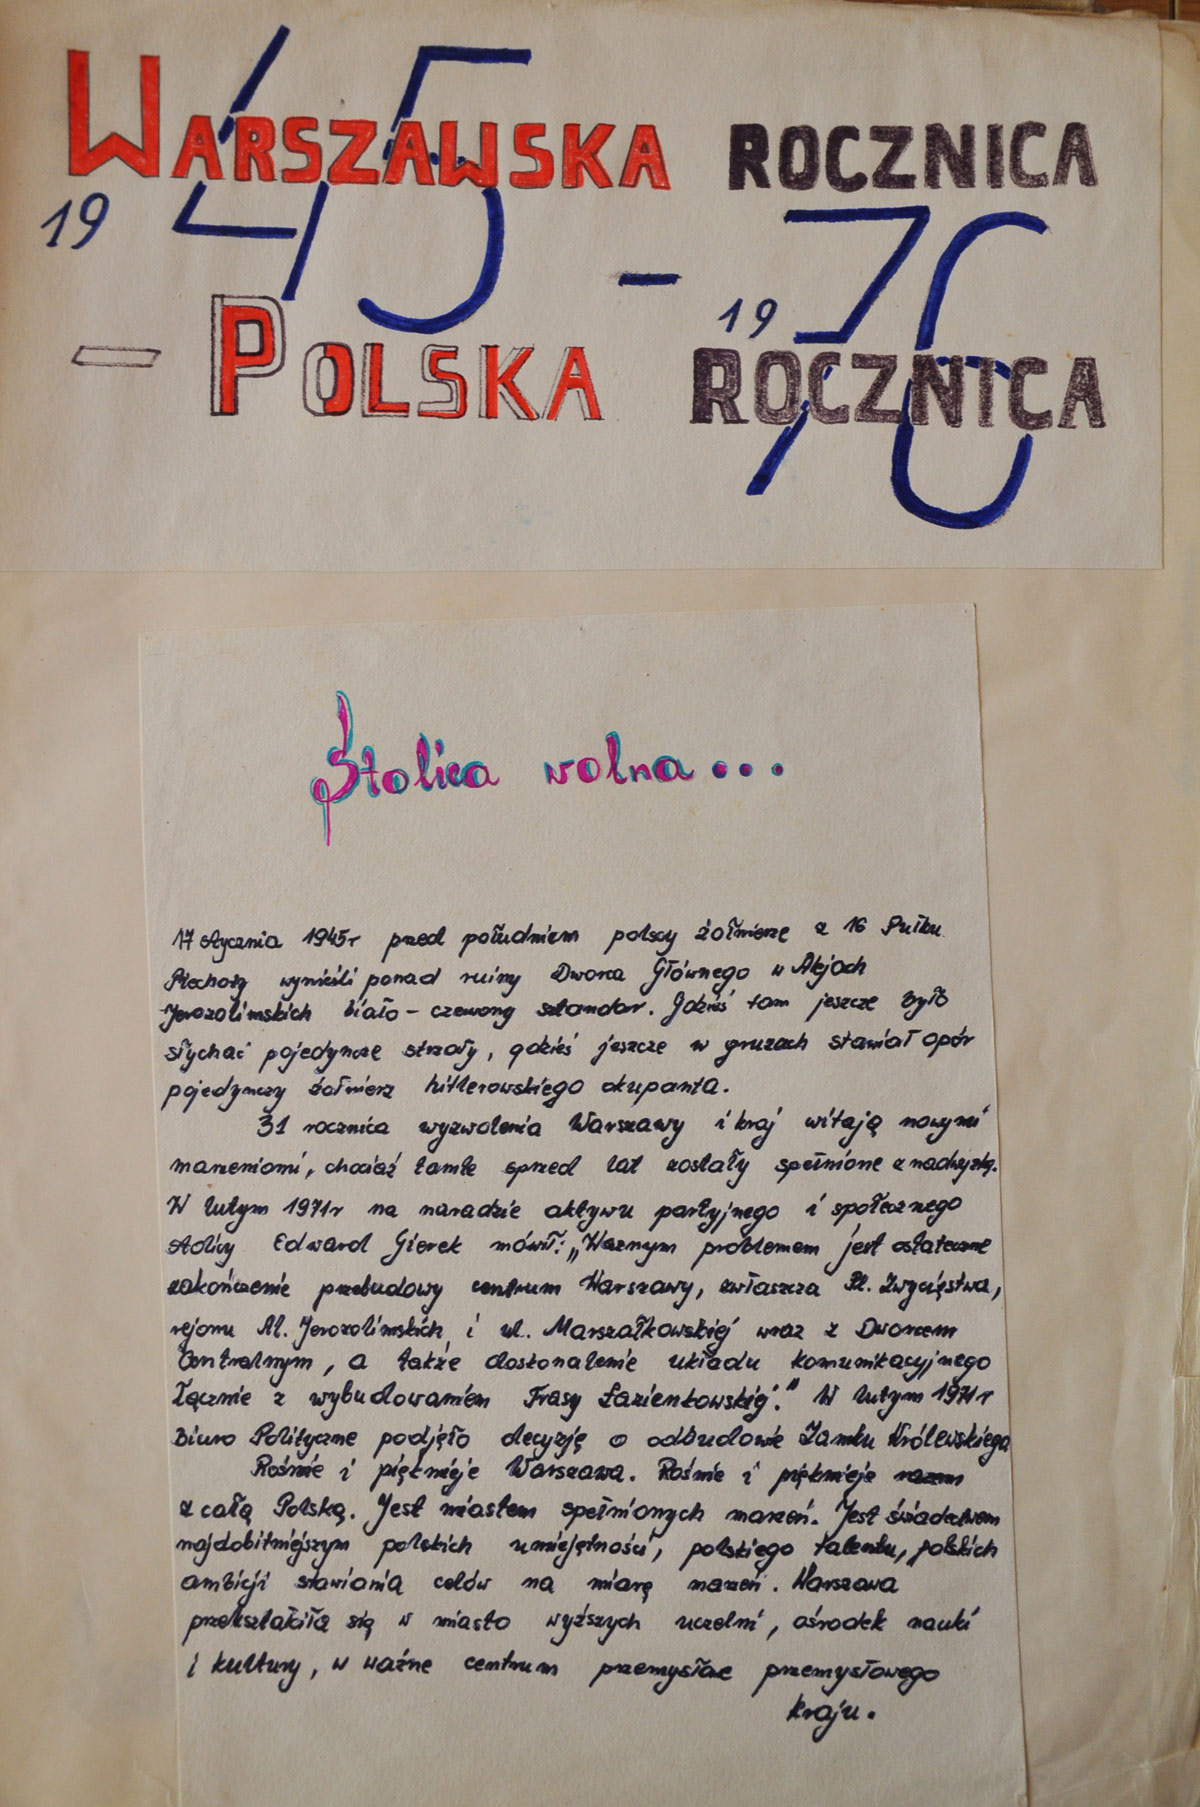 WARSZAWSKA ROCZNICA
1945 - 1976
- POLSKA ROCZNICA
Stolica wolna...
17 stycznia 1945r przed południem polscy żołnierze z 16 Pułku
Piechoty wynieśli ponad ruiny Dworca Głównego w Alejach
Jerozolimskich biało-czerwony sztandar. Gdzieś tam jeszcze było
słychać pojedyncze strzały, gdzieś jeszcze w gruzach stawiał opór
pojedynczy żołnierz hitlerowskiego okupanta.
31 rocznica wyzwolenia Warszawy i kraj witają nowymi
marzeniami, chociaż tamte sprzed lat zostały spełnione z nadwyżką.
W lutym 1971r na naradzie aktywu partyjnego i społecznego
stolicy Edward Gierek mówił: „Ważnym problemem jest ostateczne
zakończenie przebudowy centrum Warszawy, zwłaszcza Pl. Zwycięstwa,
rejonu Al. Jerozolimskich i ul. Marszałkowskiej wraz z Dworcem
Centralnym, a także doskonalenie układu komunikacyjnego
łącznie z wybudowaniem Trasy Łazienkowskiej." W lutym 1971r
Biuro Polityczne podjęło decyzję o odbudowie Zamku Królewskiego
Rośnie i pięknieje Warszawa. Rośnie i pięknieje razem
z całą Polską. Jest miastem spełnionych marzeń. Jest świadectwem
najdobitniejszym polskich umiejętności, polskiego talentu, polskich
ambicji stawiania celów na miarę marzeń. Warszawa
przekształciła się w miasto wyższych uczelni, ośrodek nauki
i kultury, w ważne centrum przemysłowego
kraju.